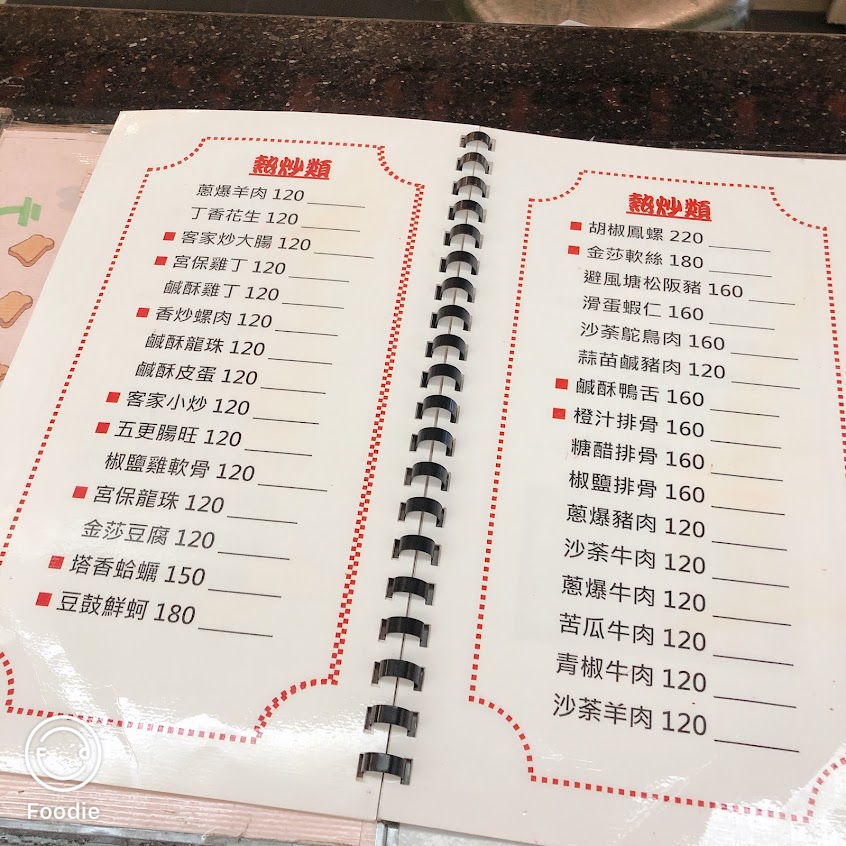 熱炒類
蔥爆羊肉 120
丁香花生 120
■ 客家炒大腸 120
■ 宮保雞丁 120
鹹酥雞丁 120
■ 香炒螺肉 120
鹹酥龍珠 120
鹹酥皮蛋 120
■ 客家小炒 120
■ 五更腸旺 120
椒鹽雞軟骨 120
■ 宮保龍珠 120
金莎豆腐 120
■ 塔香蛤蠣 150
■ 豆鼓鮮蚵 180
熱炒類
■ 胡椒鳳螺 220
■ 金莎軟絲 180
避風塘松阪豬 160
滑蛋蝦仁 160
沙茶鴕鳥肉 160
蒜苗鹹豬肉 120
■ 鹹酥鴨舌 160
■ 橙汁排骨 160
糖醋排骨 160
椒鹽排骨 160
蔥爆豬肉 120
沙茶牛肉 120
蔥爆牛肉 120
苦瓜牛肉 120
青椒牛肉 120
沙茶羊肉 120
Foodie